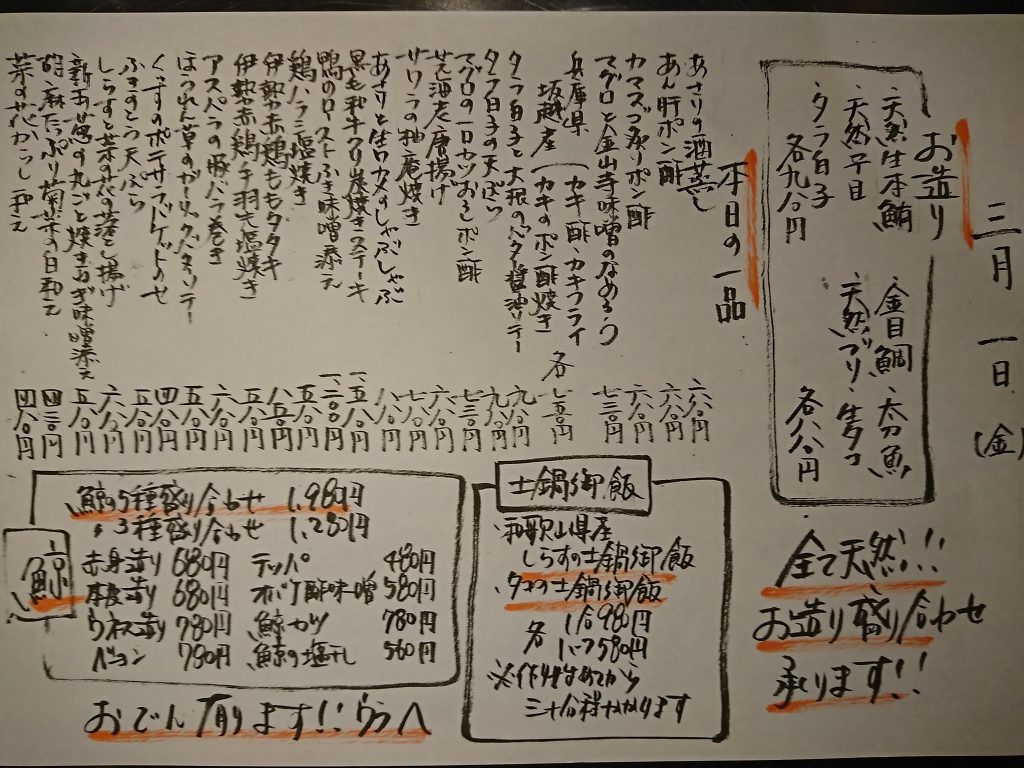 三月一日(金)
お造り
・天然生本鮪 ・金目鯛 ・太刀魚
・天然平目 ・天然ブリ ・生タコ
・タラ白子
各九八〇円 各八八〇円
全て天然!!
お造り盛り合わせ
承ります!!
本日の一品
あさりの酒蒸し 六八〇円
あん肝ポン酢 六八〇円
カマスづ造りポン酢 六八〇円
マグロと金山寺味噌のなめろう 七三〇円
兵庫県
坂越産 カキ酢 カキフライ
カキのポン酢焼き 各七五〇円
タラ白子と大根のバター醤油ソテー 九八〇円
タラ白子の天ぷら 九八〇円
マグロの一口カツおろしポン酢 七三〇円
唐揚げ 六八〇円
サワラの柚庵焼き 七八〇円
あさりと生ワカメのしゃぶしゃぶ 八八〇円
黒毛和牛クリ炭焼きステーキ 一、五八〇円
鴨のローストふき味噌添え 一、二〇〇円
鶏ハラミ塩焼き 五八〇円
伊勢赤鶏ももタタキ 八五〇円
伊勢赤鶏手羽先塩焼き 五八〇円
アスパラの豚バラ巻き 六八〇円
ほうれん草のガーリックバターソテー 五八〇円
くんすのポテサラバゲットのせ 四八〇円
ふきのとう天ぷら 五八〇円
しらすと菜の花の落とし揚げ 六八〇円
新玉葱の丸ごと焼きねぎ味噌添え 五八〇円
胡麻たっぷり菊菜の白和え 四三〇円
菜の花からし和え 四八〇円
土鍋御飯
・和歌山県産
しらすの土鍋御飯
・タコの土鍋御飯
各 1合 980円
1.5 1,580円
※作り始めてから
三十分程かかります
鯨
鯨の5種盛り合わせ 1,980円
〃 3種盛り合わせ 1,280円
赤身造り 680円 テッパ 480円
本皮造り 680円 オバケ酢味噌 580円
ウネス造り 780円 鯨カツ 780円
ベーコン 780円 鯨の塩干し 560円
おでん有ります!!ウラへ